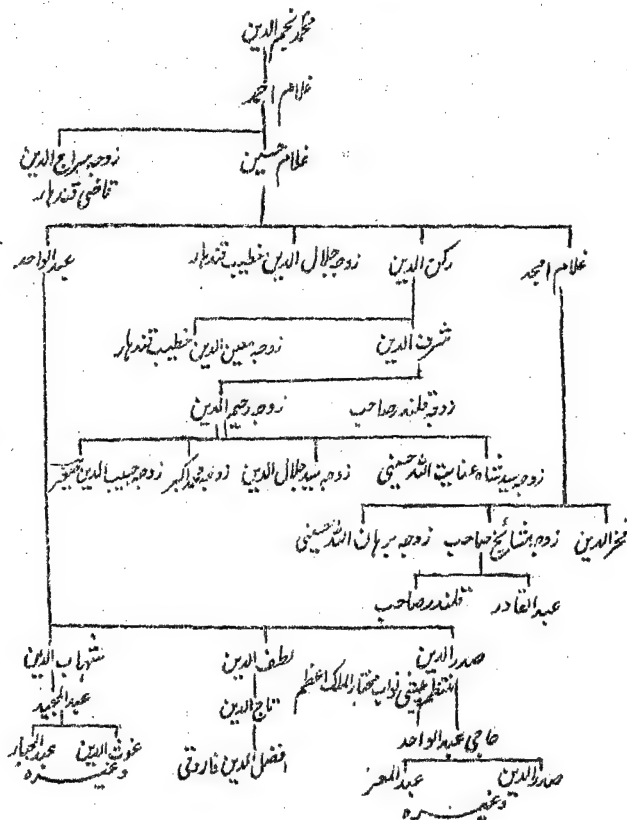 محمد نجم الدین
غلام احمد
غلام حسین
زوجہ سراج الدین
قاضی قندہار
غلام امجد
رکن الدین
زوجہ جلال الدین خطیب قندہار
عبدالواحد
شرف الدین
زوجہ معین الدین خطیب قندہار
زوجہ قلندر صاحب
زوجہ رحیم الدین
زوجہ سید شاہ عنایت اللہ حسینی
زوجہ سید جلال الدین
زوجہ محمد اکبر
زوجہ حبیب الدین
فخر الدین
زوجہ مشائخ صاحب
زوجہ برہان اللہ حسینی
عبدالقادر
قلندر صاحب
صدر الدین
منتظم نواب مختار الملک اعظم
لطف الدین
شہاب الدین
تاج الدین
عبدالمجید
حاجی عبدالواحد
افضل الدین فاروقی
غوث الدین
عبدالجبار
وغیرہ
صدر الدین
عبدالمعز
وغیرہ